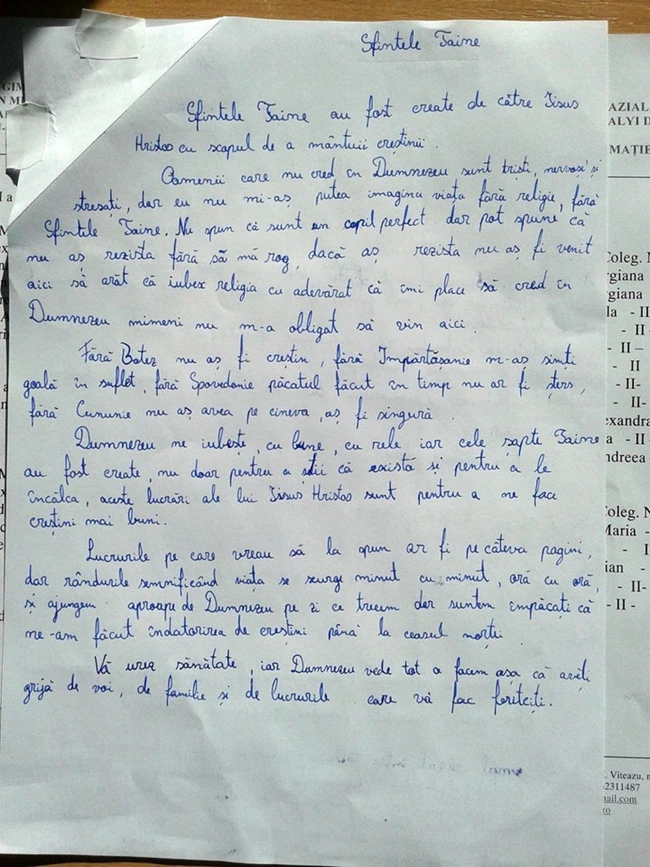 Sfintele Taine
Sfintele Taine au fost create de către Iisus
Hristos cu scopul de a mântuii creștinii.
Oamenii care nu cred în Dumnezeu sunt triști, nervoși și
stresați, dar eu nu mi-aș putea imagina viața fără religie, fără
Sfintele Taine. Nu spun că sunt un copil perfect dar pot spune că
nu aș rezista fără să mă rog, dacă aș rezista nu aș fi venit
aici să arăt că iubesc religia cu adevărat că îmi place să cred în
Dumnezeu mimeni nu m-a obligat să vin aici.
Fără Botez nu aș fi creștin, fără Împărtășanie m-aș simți
goală în suflet, fără Spovedanie păcatul făcut în timp nu ar fi șters,
fără Cununie nu aș avea pe cineva, aș fi singură.
Dumnezeu ne iubește, cu bune, cu rele iar cele șapte Taine
au fost create, nu doar pentru a știi că există și pentru a le
încălca, aceste lucrări ale lui Iisus Hristos sunt pentru a ne face
creștini mai buni.
Lucrurile pe care vreau să la spun ar fi pe câteva pagini,
dar rândurile semnificând viața se scurge minut cu minut, oră cu oră,
și ajungem aproape de Dumnezeu pe zi ce trecem dar suntem împăcați că
ne-am făcut îndatorirea de creștini până la ceasul morții.
Vă urez sănătate, iar Dumnezeu vede tot a facem așa că aveți
grijă de voi, de familie și de lucrurile care vă fac fericiți.
AZIAL
ALYI D
MAȚIE
Coleg. N
rgiana
la - II
- II -
- II –
- II
- II-
- II-
exandra
a - II
ndreea
Coleg. N
Maria -
- I
ian -
- II-
- II -
. Viteazu, n
2311487
ail.com
ro